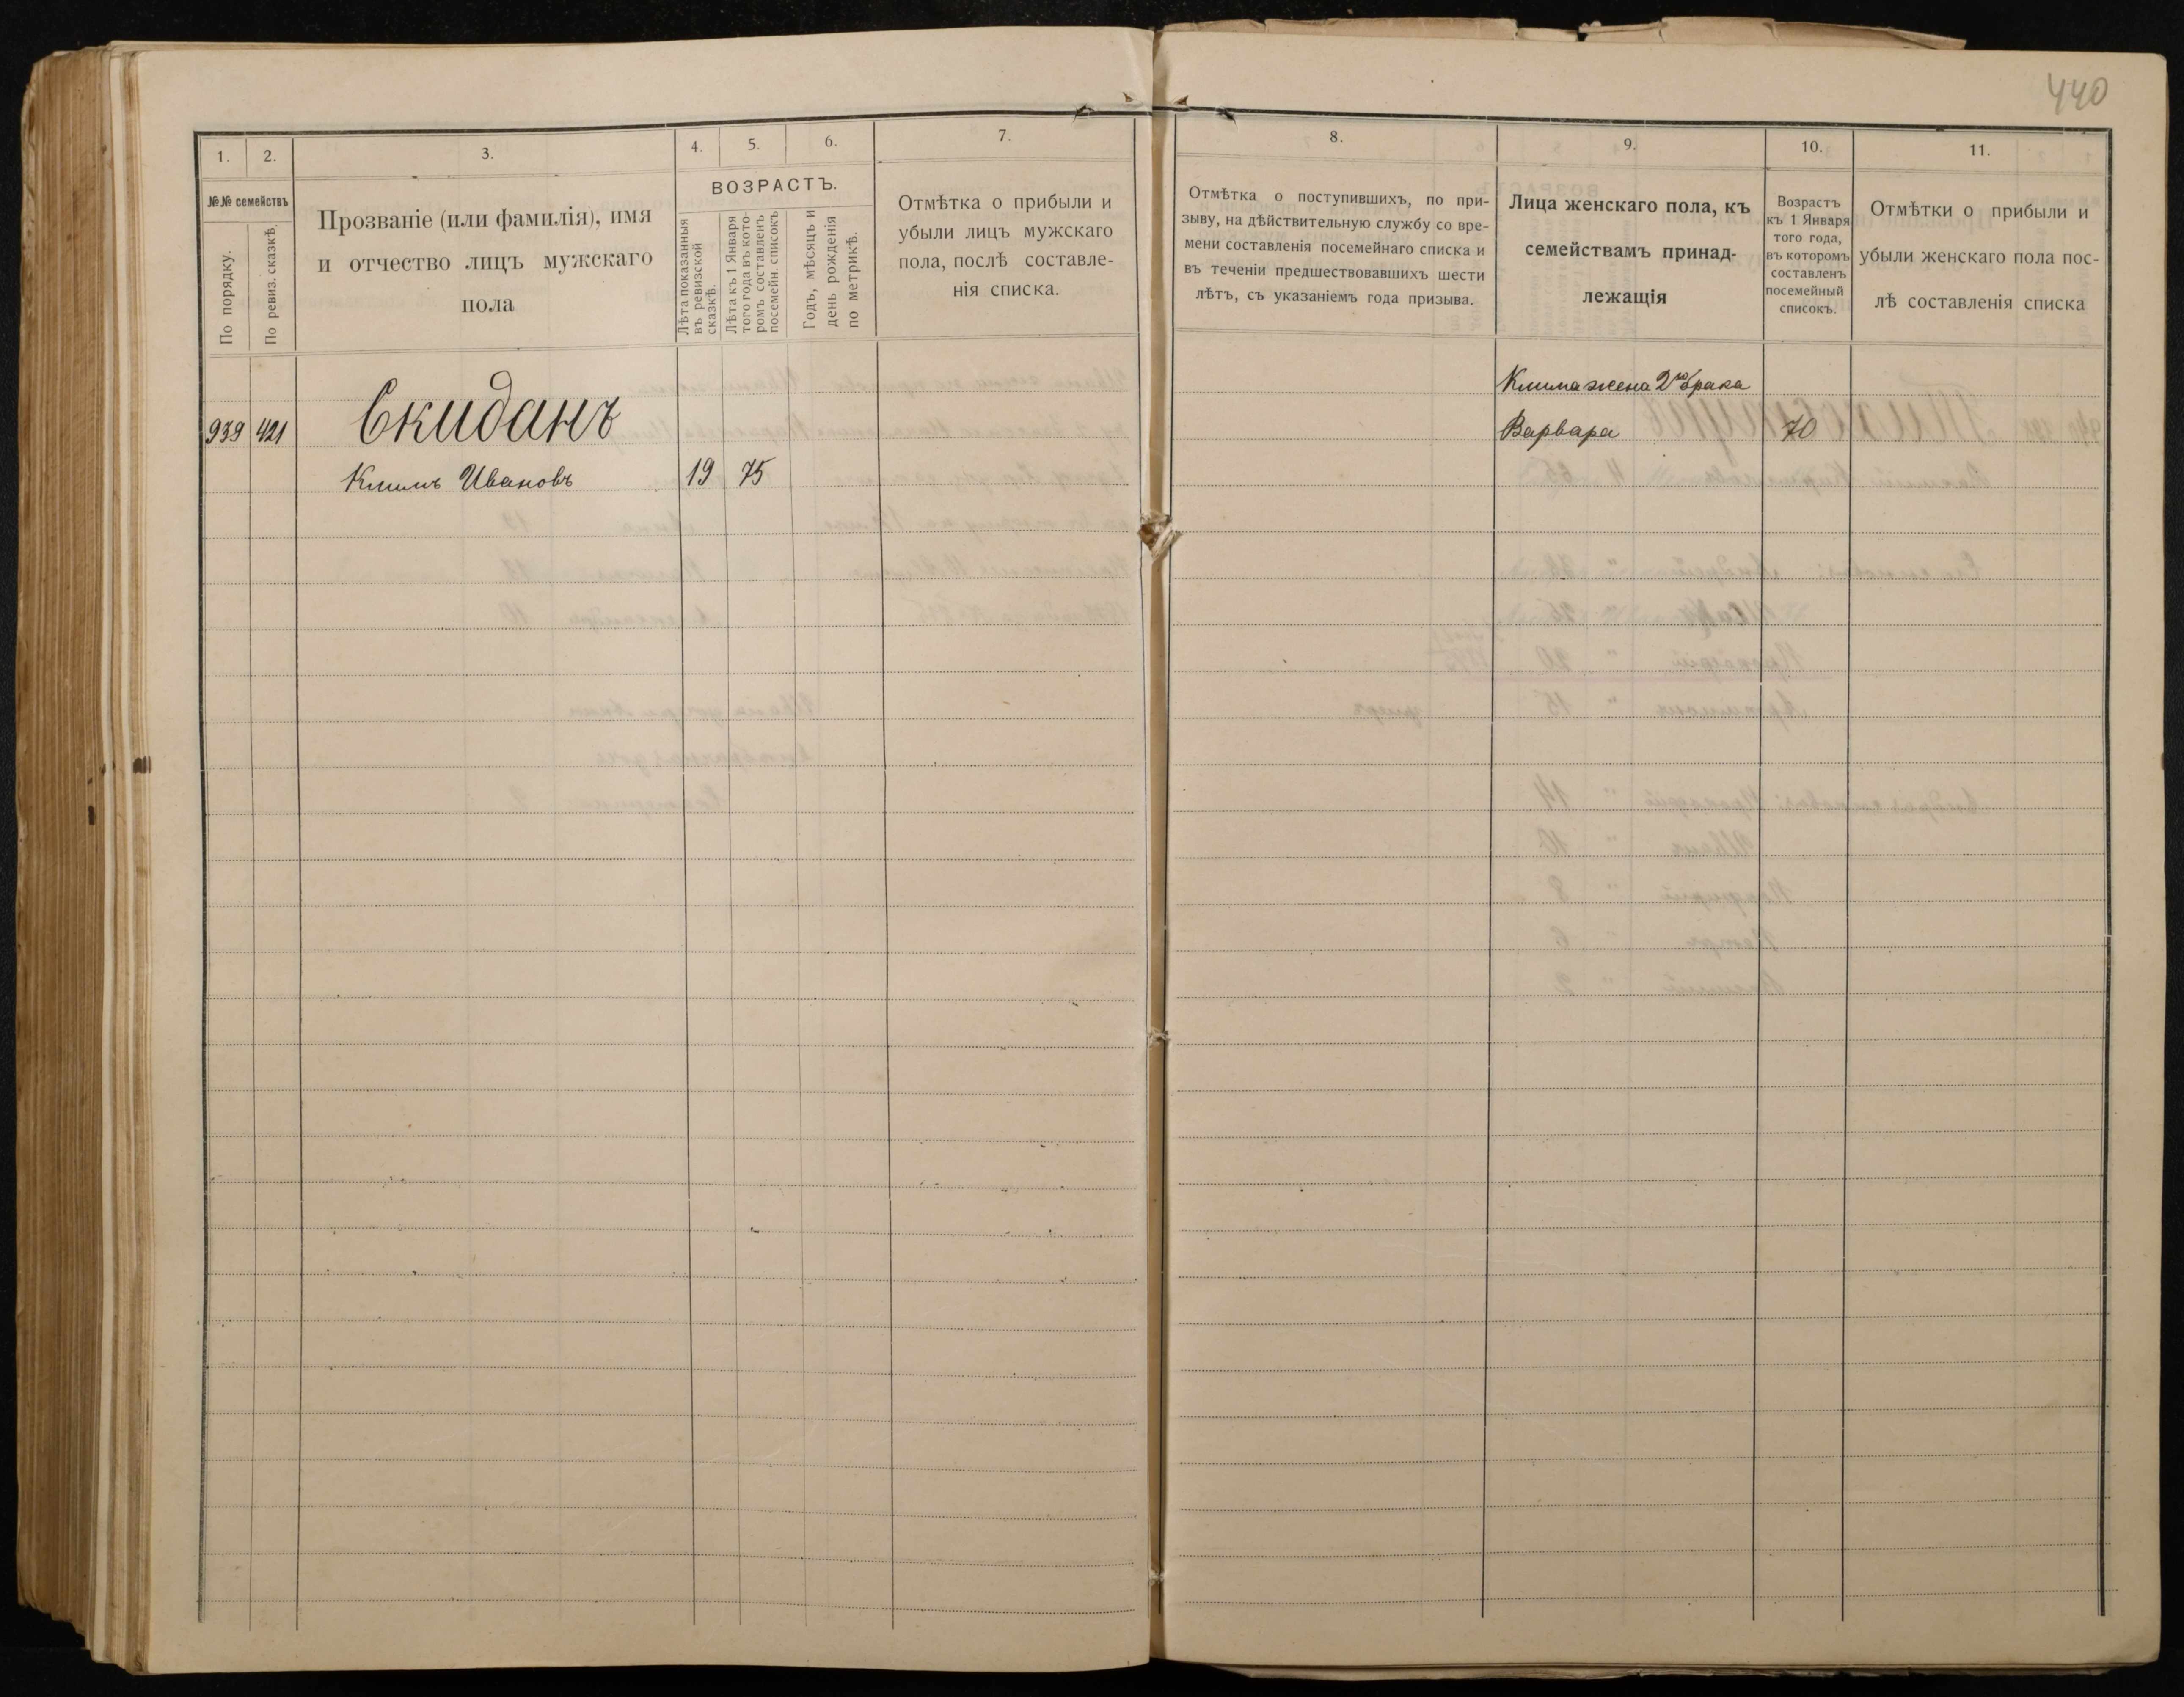 440
1.
2.
3.
4.
5.
6.
7.
№№ семействъ
По порядку.
По ревиз. сказкѣ.
Прозваніе (или фамилія), имя
и отчество лицъ мужскаго
пола
ВОЗРАСТЪ.
Лѣта показанныя
въ ревизской
сказкѣ.
Лѣта къ 1 Января
того года въ кото-
ромъ составленъ
посемейн. списокъ
Годъ, мѣсяцъ и
день рожденія
по метрикѣ.
Отмѣтка о прибыли и
убыли лицъ мужскаго
пола, послѣ составле-
нія списка.
939 421 Скиданъ
Климъ Ивановъ 19 75
8.
9.
10.
11.
Отмѣтка о поступившихъ, по при-
зыву, на дѣйствительную службу со вре-
мени составленія посемейнаго списка и
въ теченіи предшествовавшихъ шести
лѣтъ, съ указаніемъ года призыва.
Лица женскаго пола, къ
семействамъ принад-
лежащія
Возрастъ
къ 1 Января
того года,
въ которомъ
составленъ
посемейный
списокъ.
Отмѣтки о прибыли и
убыли женскаго пола пос-
лѣ составленія списка
Клима жена 2го брака
Варвара 70